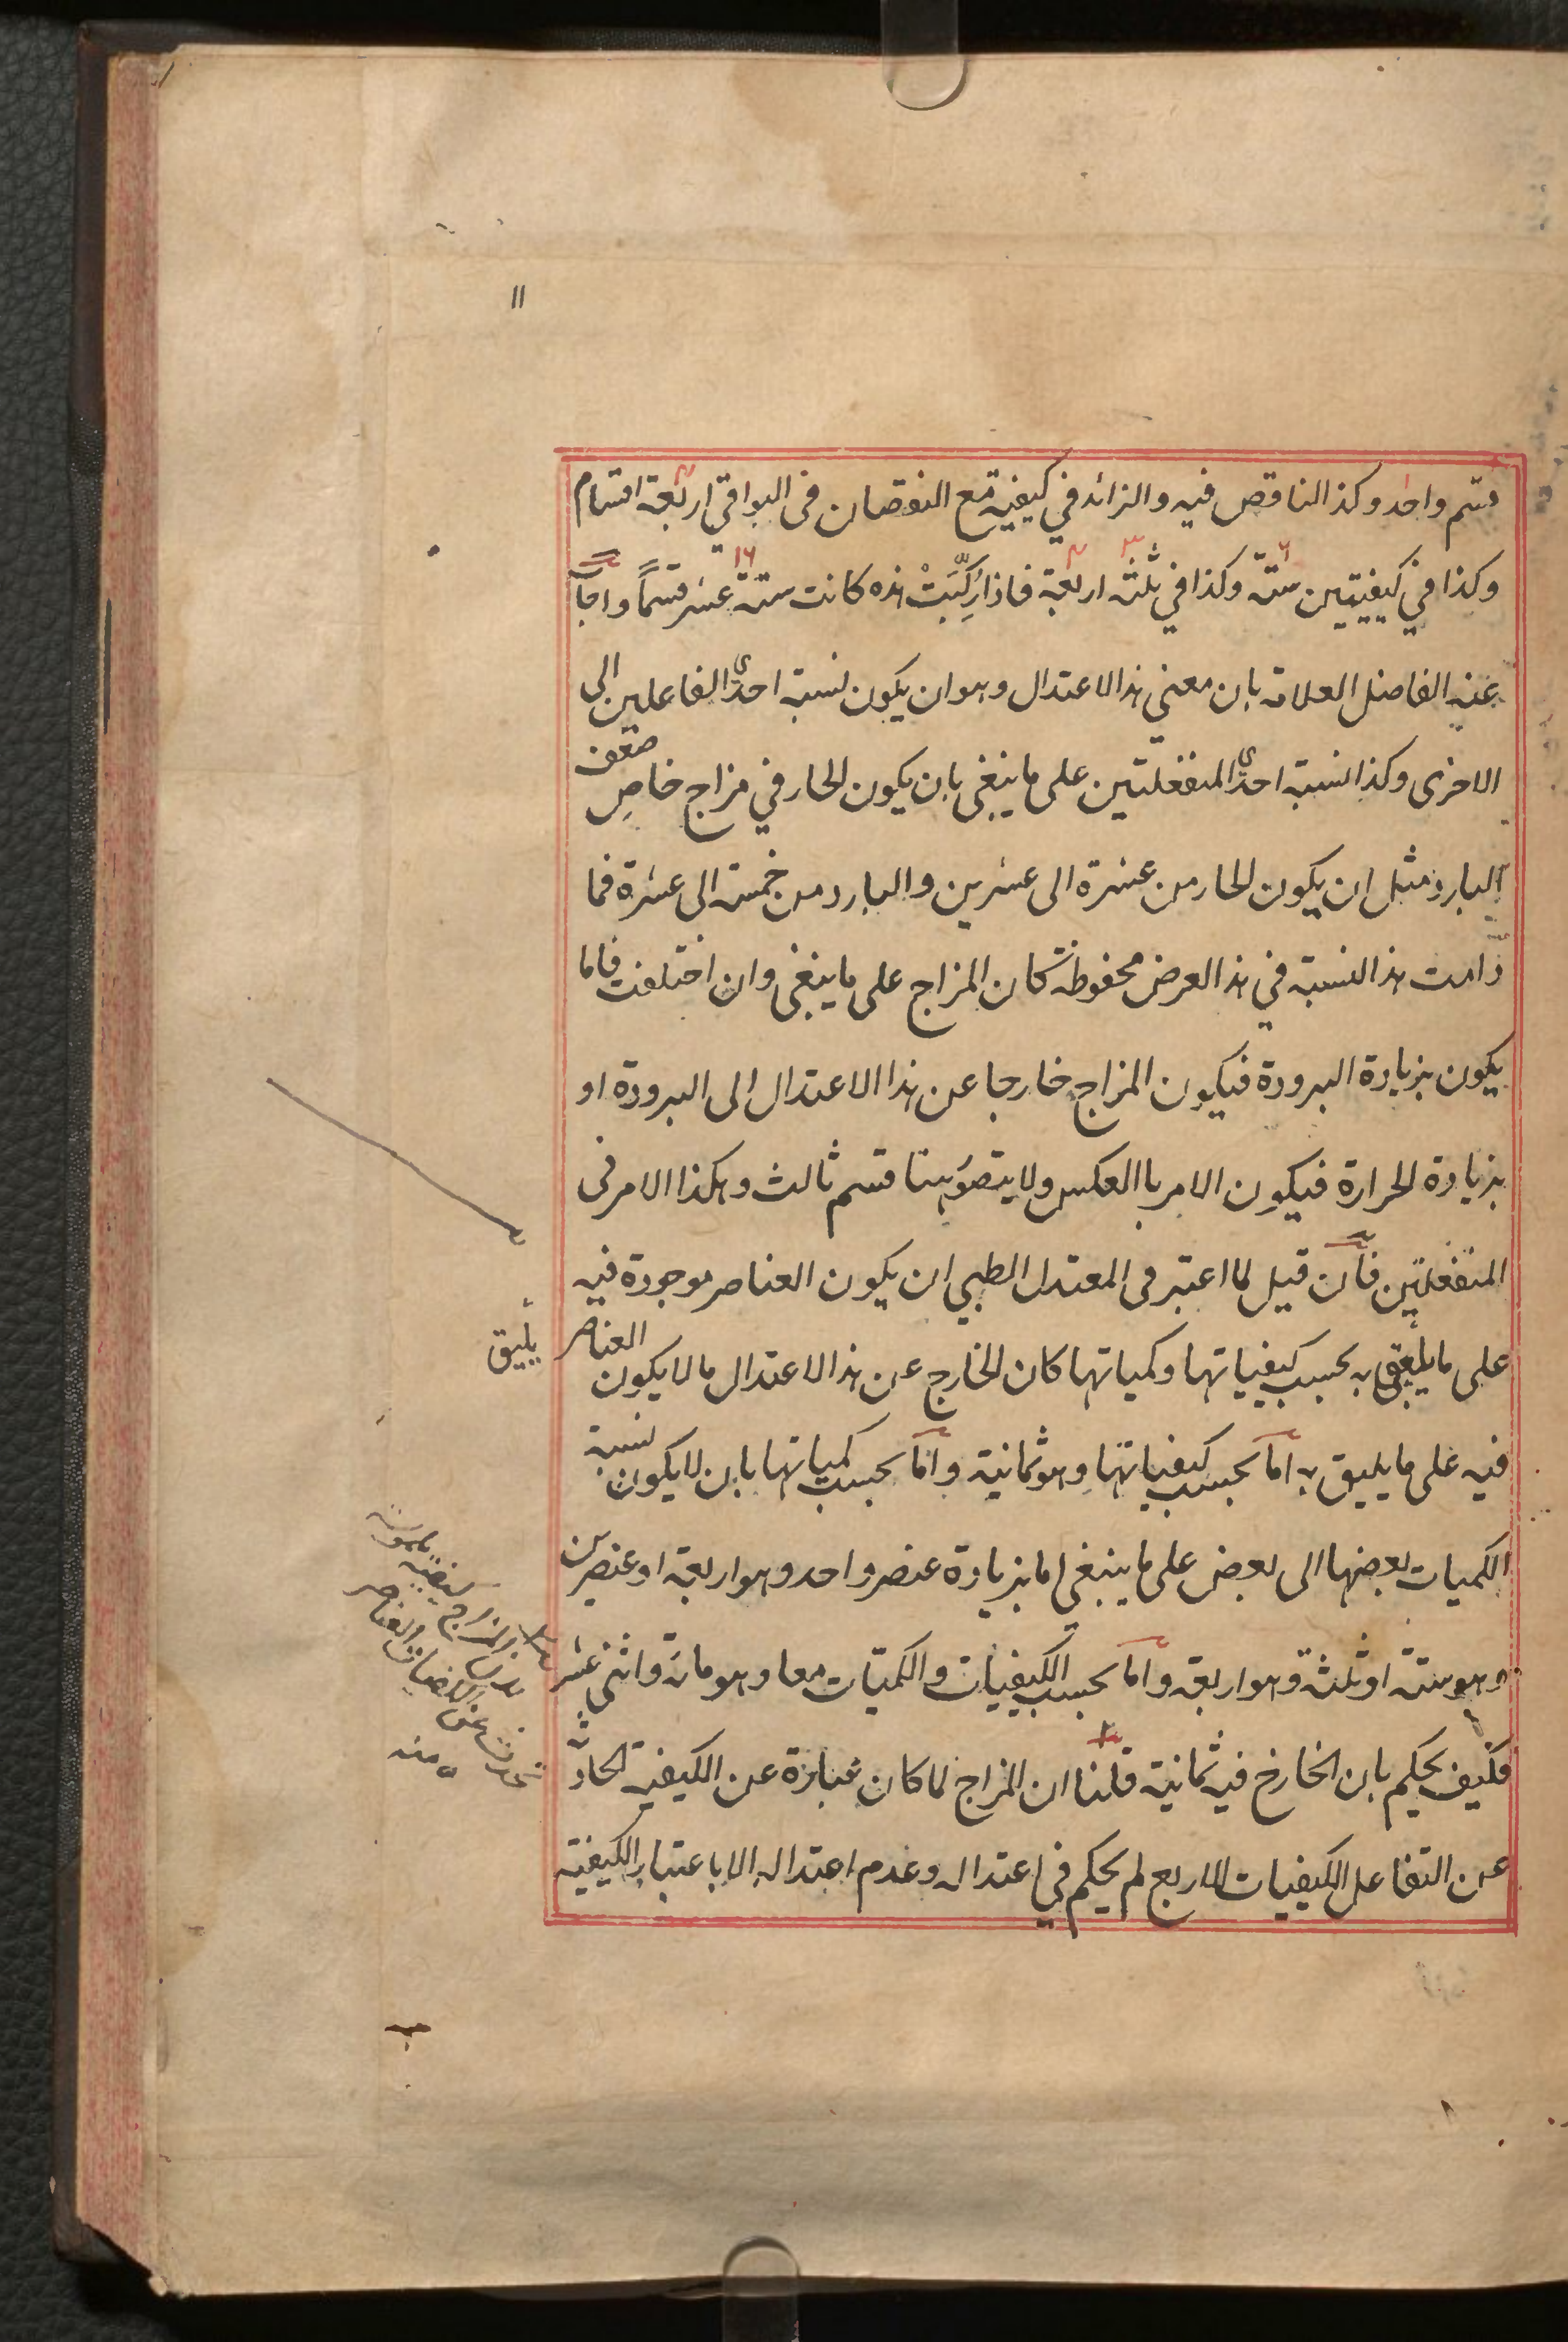 ۱۱
قسم واحد وكذا الناقص فيه والزائد في كيفية مع النقصان في البواقي اربعة اقسام
وكذا في كيفيتين ستة وكذا في ثلثة اربعة فاذا رُكِّبَتْ هذه كانت ستة عشر قسماً واجاب
عنه الفاضل العلامة بان معنى هذا الاعتدال وهو ان يكون نسبة احدى الفاعلين الى
الاخرى وكذا نسبة احدى المنفعلتين على ما ينبغي بان يكون الحار في مزاج خاص ضعف
البارد مثل ان يكون الحار من عشرة الى عشرين والبارد من خمسة الى عشرة فما
دامت هذا النسبة في هذا العرض محفوظة كان المزاج على ما ينبغي وان اختلفت فاما
يكون بزيادة البرودة فيكون المزاج خارجا عن هذا الاعتدال الى البرودة او
بزيادة الحرارة فيكون الامر باالعكس ولا يتصور هنا قسم ثالث وهكذا الامر في
المنفعلتين فان قيل لما اعتبر في المعتدل الطبي ان يكون العناصر موجودة فيه
على ما يليق به بحسب كيفياتها وكمياتها كان الخارج عن هذا الاعتدال ما لا يكون العناصر
يليق
فيه على ما يليق به اما بحسب كيفياتها وهو ثمانية واما بحسب كمياتها بان لا يكون نسبة
الكميات بعضها الى بعض على ما ينبغي اما بزيادة عنصر واحد وهو اربعة او عنصرين
وهو ستة او ثلثة وهو اربعة واما بحسب الكيفيات والكميات معا وهو مائة واثنى عشر
فكيف يحكم بان الخارج فيه ثمانية قلنا ان المزاج لما كان عبارة عن الكيفية الحادثة
عن التفاعل الكيفيات الاربع لم يحكم في اعتداله وعدم اعتداله الا باعتبار الكيفية